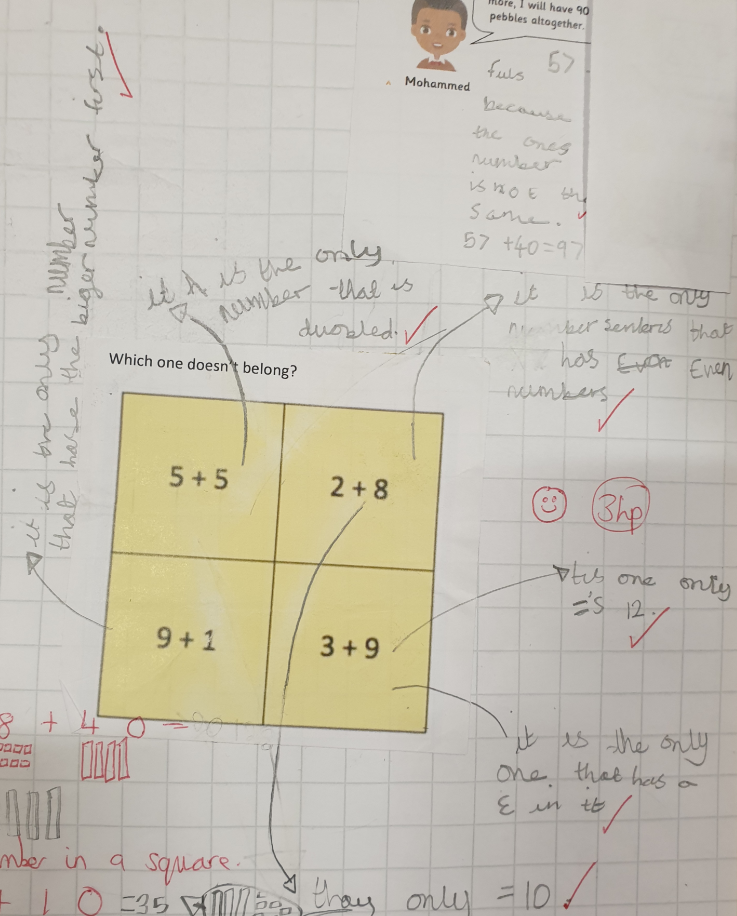 more, I will have 90
pebbles altogether.
Mohammed
57
fuls
because
the ones
number
is not th
Same.
57 +40=97
it is the only number
that hase the biger number first.
it A is the only
number that is
duobled.
it is the only
number sentens that
has Even
numbers
Which one doesn't belong?
5 + 5
2 + 8
9 + 1
3 + 9
3hp
this one only
='s 12.
it is the only
one. that has a
3 in it
8 + 40 =
mber in a square.
+ 10 =35
they only =10